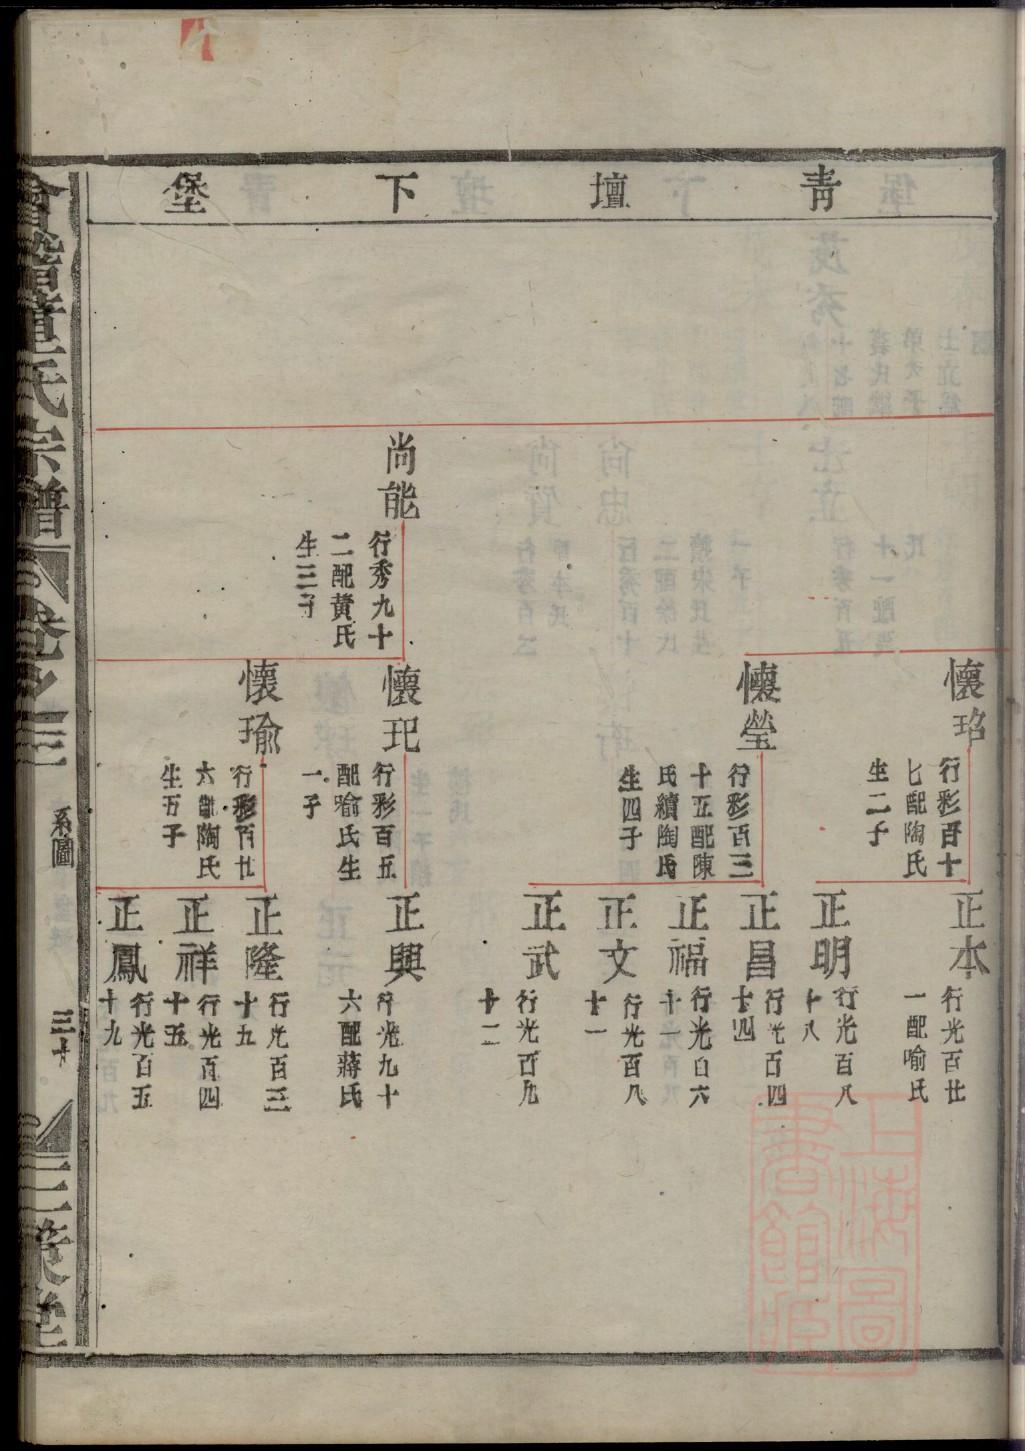 青壇下堡
尚能
行秀九十
二配黃氏
生三子
懷珆
行彩百十
七配陶氏
生二子
懷瑩
行彩百三
十五配陳
氏續陶氏
生四子
懷玘
行彩百五
配喻氏生
一子
懷瑜
行彩百廿
六配陶氏
生五子
正本
行光百廿
一配喻氏
正明
行光百八
十八
正昌
行光百四
十四
正福
行光百六
十一
正文
行光百八
十一
正武
行光百九
十二
正興
行光九十
六配蔣氏
正隆
行光百三
十五
正祥
行光百四
十五
正鳳
行光百五
十九
會稽
氏宗譜
卷之三
系圖
三十
上海圖
書館藏